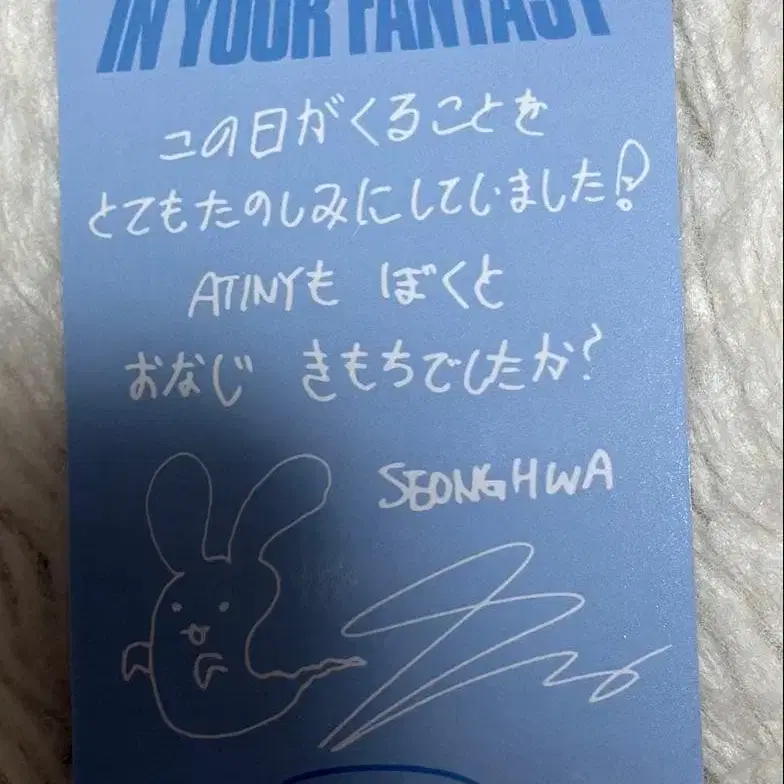 IN YOUR FANTASY
この日がくることを
とてもたのしみにしていました!
ATINYも ぼくと
おなじ きもちでしたか?
SEONGHWA